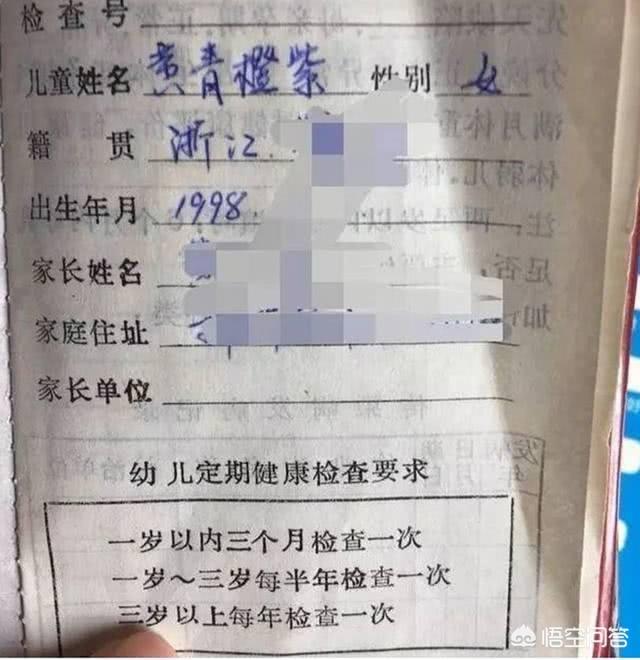 检查号
儿童姓名 黄青橙紫 性别 女
籍贯 浙江
出生年月 1998
家长姓名
家庭住址
家长单位
幼儿定期健康检查要求
一岁以内三个月检查一次
一岁～三岁每半年检查一次
三岁以上每年检查一次
悟空问答